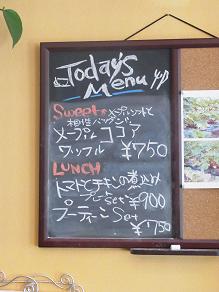 Today's
Menu
Sweet メープルソフトと
相性バツグン!!
メープルココア
ワッフル ¥750
LUNCH
トマトとチキンの煮込み
プレートSet ¥900
プーティーンSet
¥750